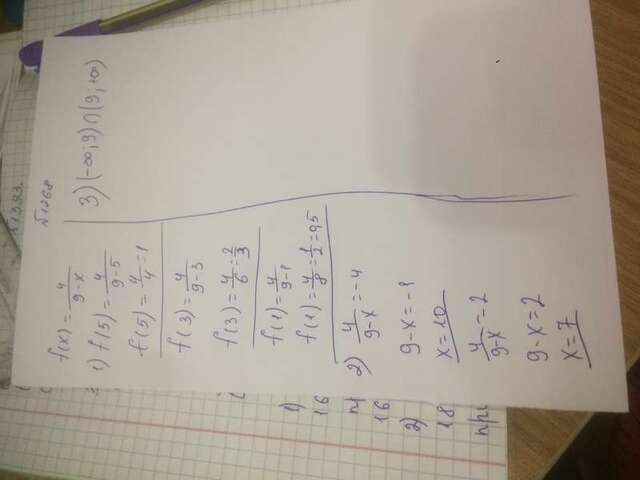 №1393.
№1268
f(x) = 4/(9-x)
1) f(5) = 4/(9-5)
f(5) = 4/4 = 1
f(3) = 4/(9-3)
f(3) = 4/6 = 2/3
f(1) = 4/(9-1)
f(1) = 4/8 = 1/2 = 0,5
2) 4/(9-x) = -4
9-x = -1
x = 10
4/(9-x) = 2
9-x = 2
x = 7
3) (-∞; 9) ∩ (9, +∞)
1)
16
пр
16
2)
18
при